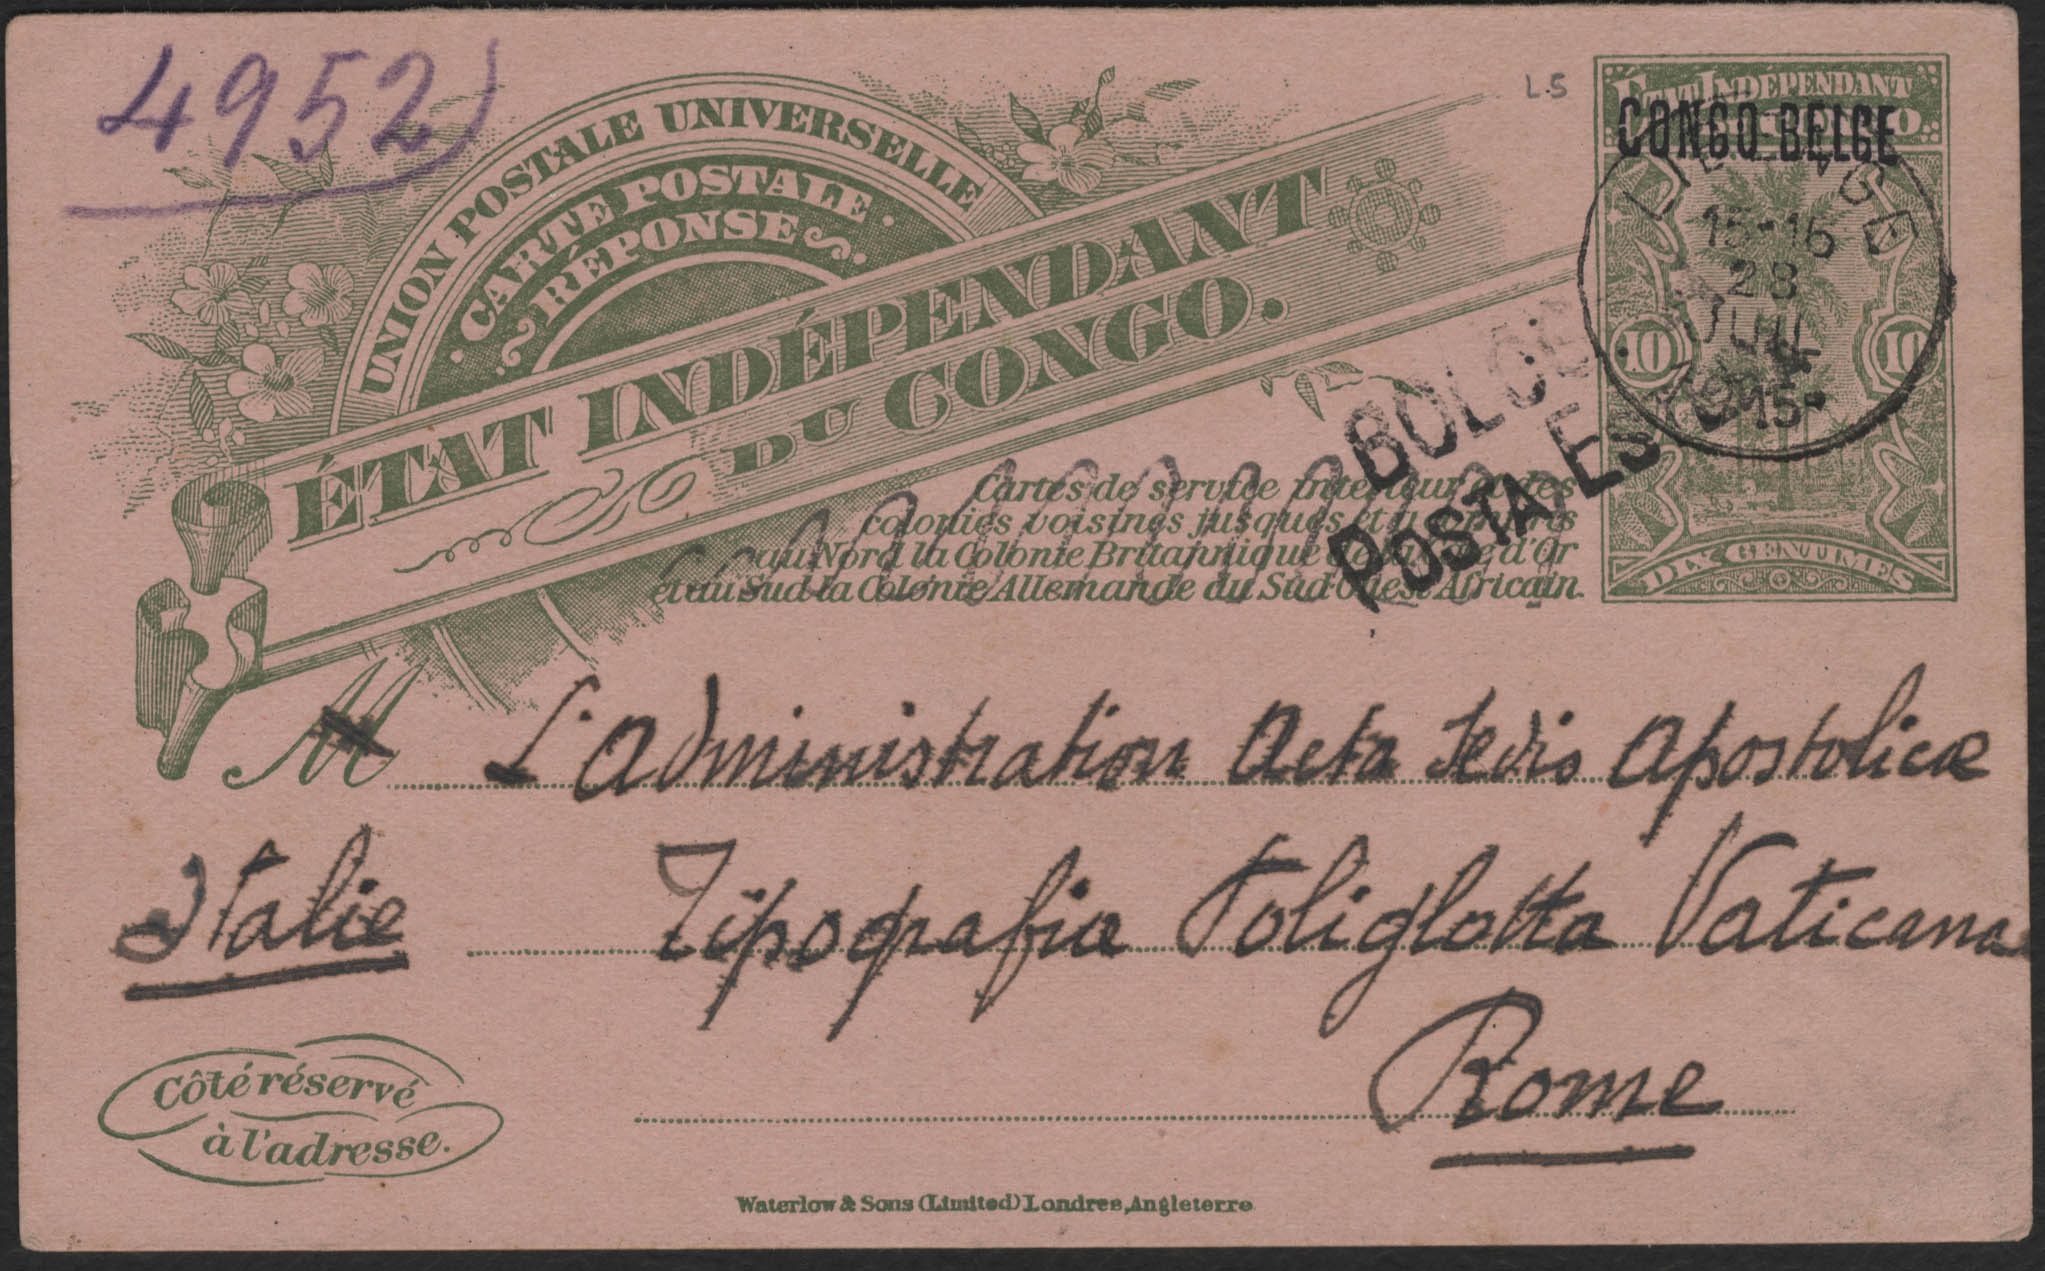 4952
L5
ÉTAT INDÉPENDANT
CONGO BELGE
UNION POSTALE UNIVERSELLE
CARTE POSTALE
RÉPONSE
ÉTAT INDÉPENDANT
DU CONGO.
15-16
28
JUIL
15
10 10
DIX CENTIMES
POSTA
Cartes de service intérieur et des
colonies voisines jusques et y compris
au Nord la Colonie Britannique d'Or
et au Sud la Colonie Allemande du Sud-Ouest Africain.
M L'Administration Acta Sedis Apostolicae
Italie Tipografia Poliglotta Vaticana
Rome
Côté réservé
à l'adresse.
Waterlow & Sons (Limited) Londres, Angleterre